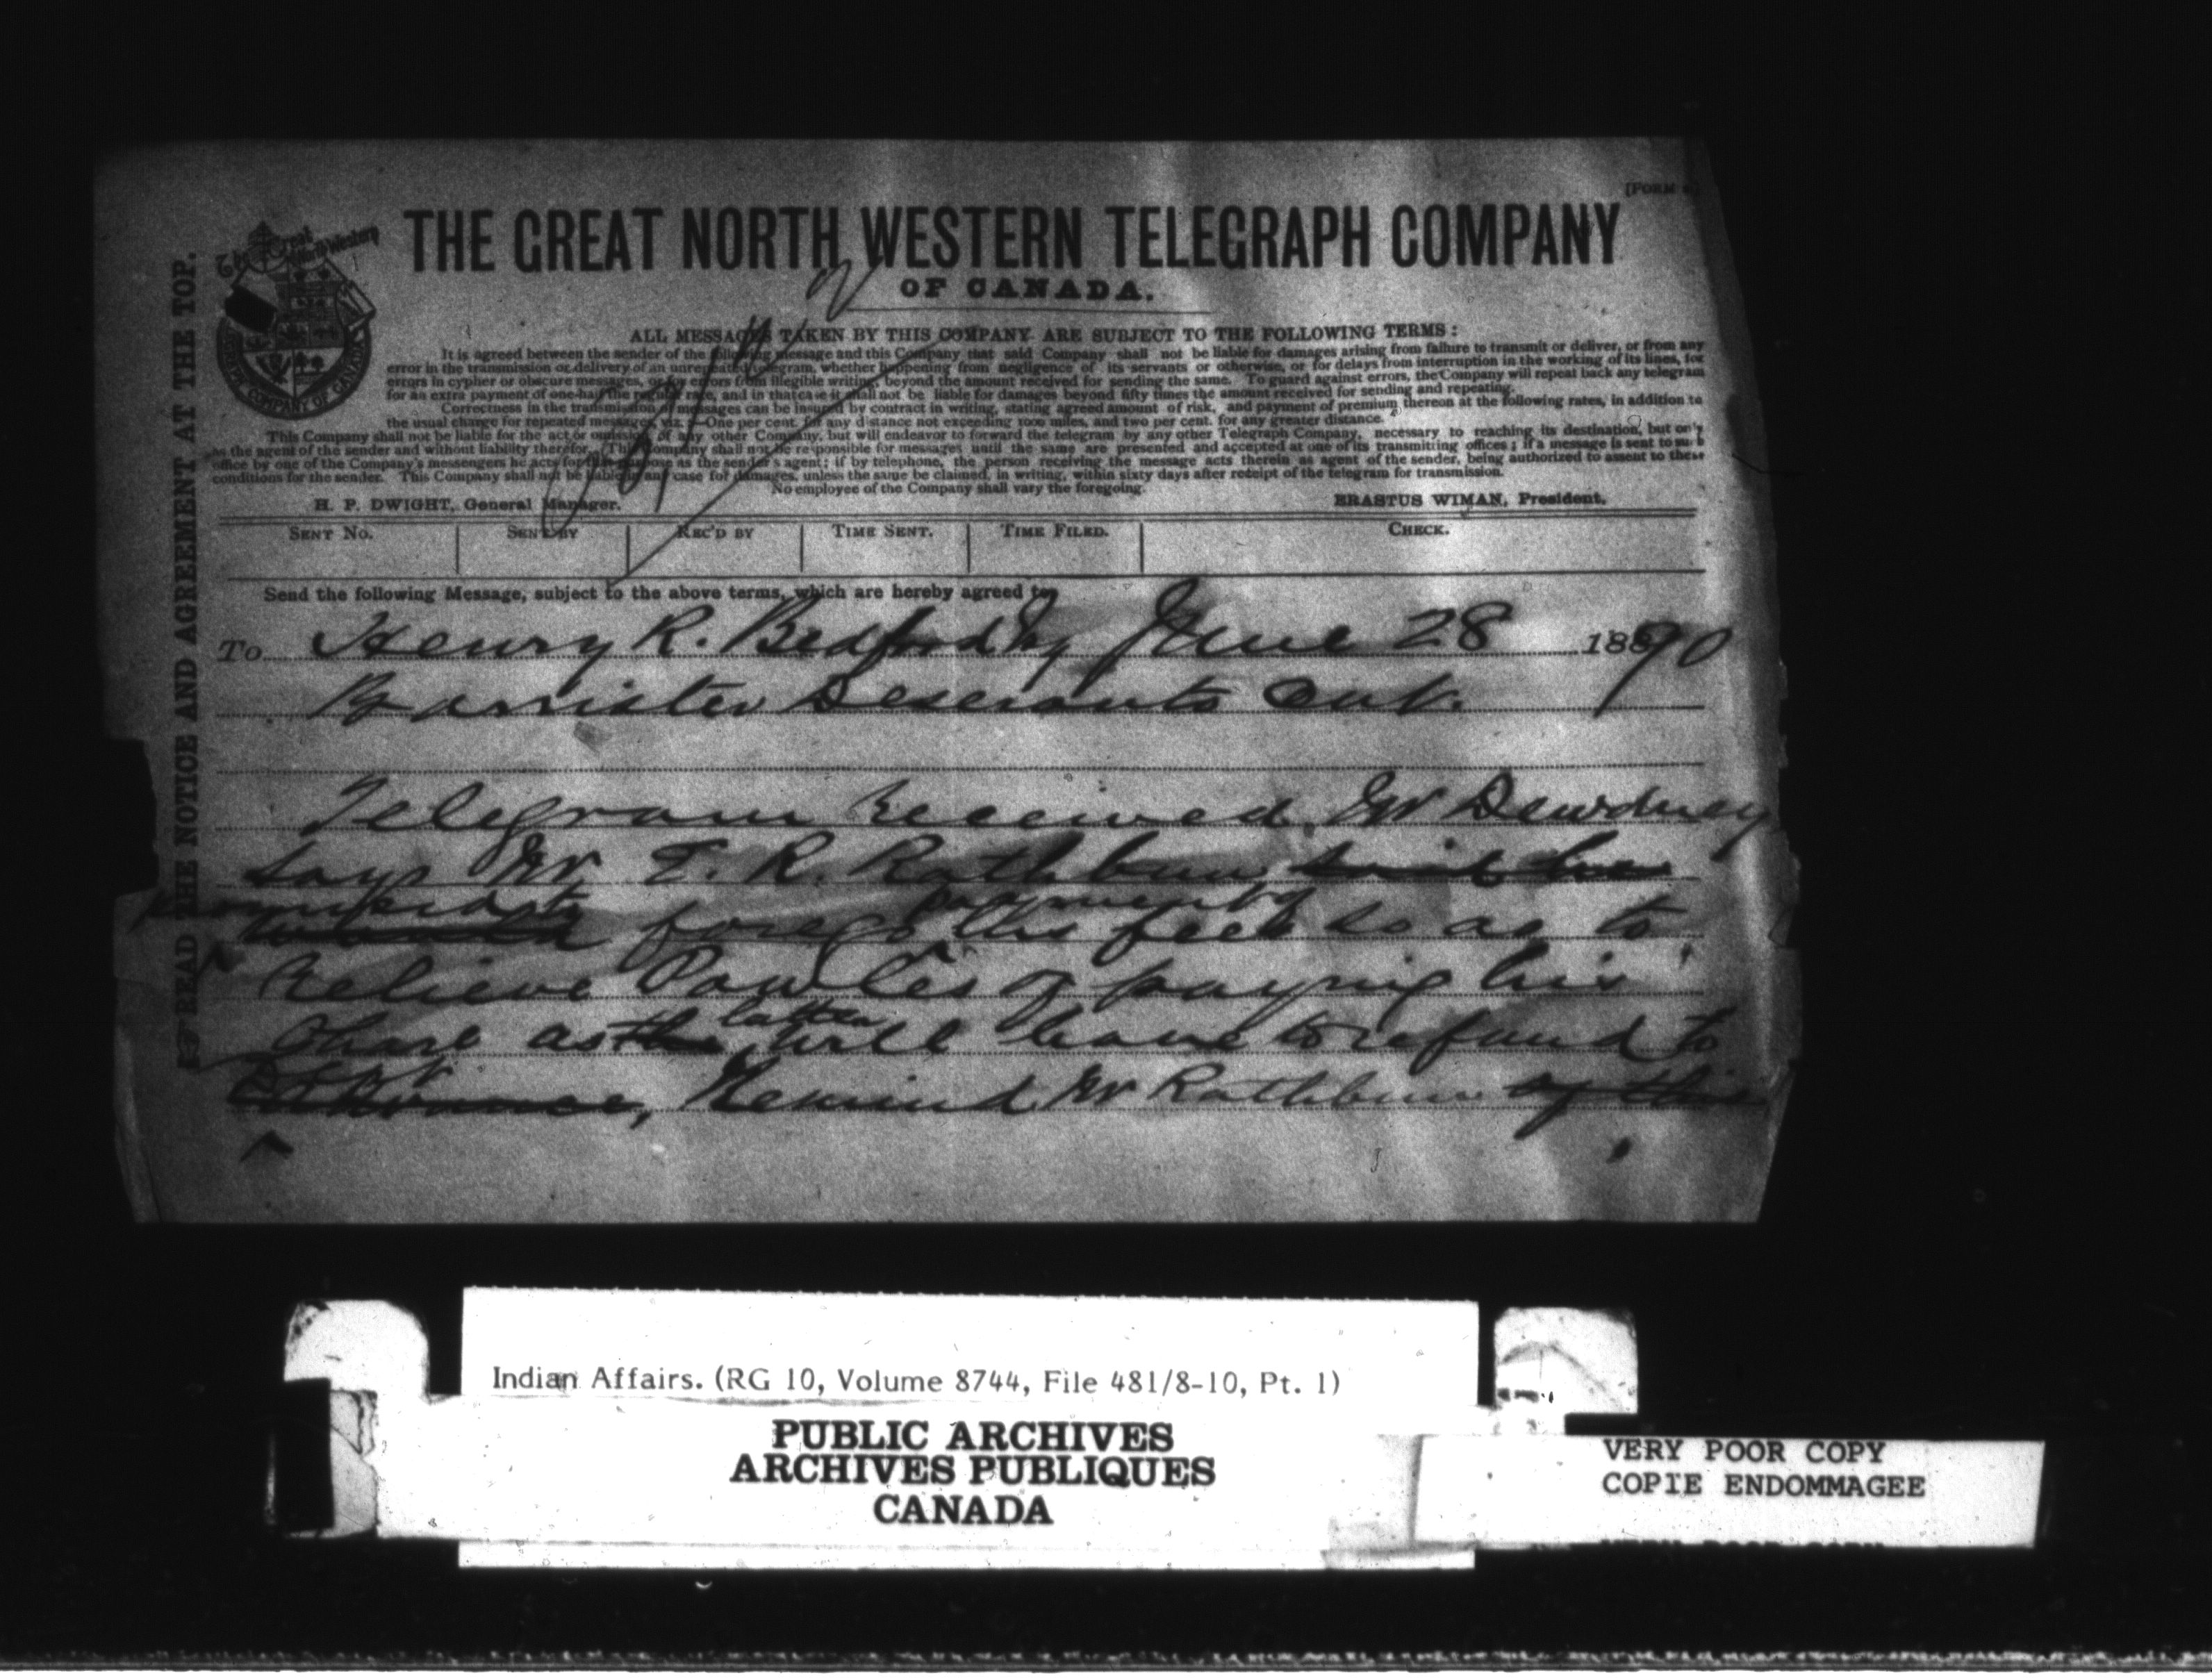 [FORM
THE GREAT NORTH WESTERN TELEGRAPH COMPANY
OF CANADA.
ALL MESSAGES TAKEN BY THIS COMPANY ARE SUBJECT TO THE FOLLOWING TERMS :
It is agreed between the sender of the following message and this Company that said Company shall not be liable for damages arising from failure to transmit or deliver, or from any
error in the transmission or delivery of an unrepeated telegram, whether happening from negligence of its servants or otherwise, or for delays from interruption in the working of its lines, for
errors in cypher or obscure messages, or for errors from illegible writing, beyond the amount received for sending the same. To guard against errors, the Company will repeat back any telegram
for an extra payment of one-half the regular rate, and in that case it shall not be liable for damages beyond fifty times the amount received for sending and repeating.
Correctness in the transmission of messages can be insured by contract in writing, stating agreed amount of risk, and payment of premium thereon at the following rates, in addition to
the usual charge for repeated messages, viz.:—One per cent. for any distance not exceeding 1000 miles, and two per cent. for any greater distance.
This Company shall not be liable for the act or omission of any other Company, but will endeavor to forward the telegram by any other Telegraph Company, necessary to reaching its destination, but only
as the agent of the sender and without liability therefor. This Company shall not be responsible for messages until the same are presented and accepted at one of its transmitting offices ; if a message is sent to such
office by one of the Company's messengers he acts for that purpose as the sender's agent; if by telephone, the person receiving the message acts therein as agent of the sender, being authorized to assent to these
conditions for the sender. This Company shall not be liable in any case for damages, unless the same be claimed, in writing, within sixty days after receipt of the telegram for transmission.
No employee of the Company shall vary the foregoing.
H. P. DWIGHT, General Manager. ERASTUS WIMAN, President.
SENT NO. SENT BY REC'D BY TIME SENT. TIME FILED. CHECK.
Send the following Message, subject to the above terms, which are hereby agreed to,
To Henry R. Bedford June 28 1890
Barrister Deseronto Ont.
Telegram received. Mr Dewdney
says Mr E. R. Rathbun said he
payment of
would forego the fees so as to
relieve Powles of paying his
latter
share as the will have to refund to
Remind Mr Rathbun of this
READ THE NOTICE AND AGREEMENT AT THE TOP.
Indian Affairs. (RG 10, Volume 8744, File 481/8-10, Pt. 1)
PUBLIC ARCHIVES
ARCHIVES PUBLIQUES
CANADA
VERY POOR COPY
COPIE ENDOMMAGEE